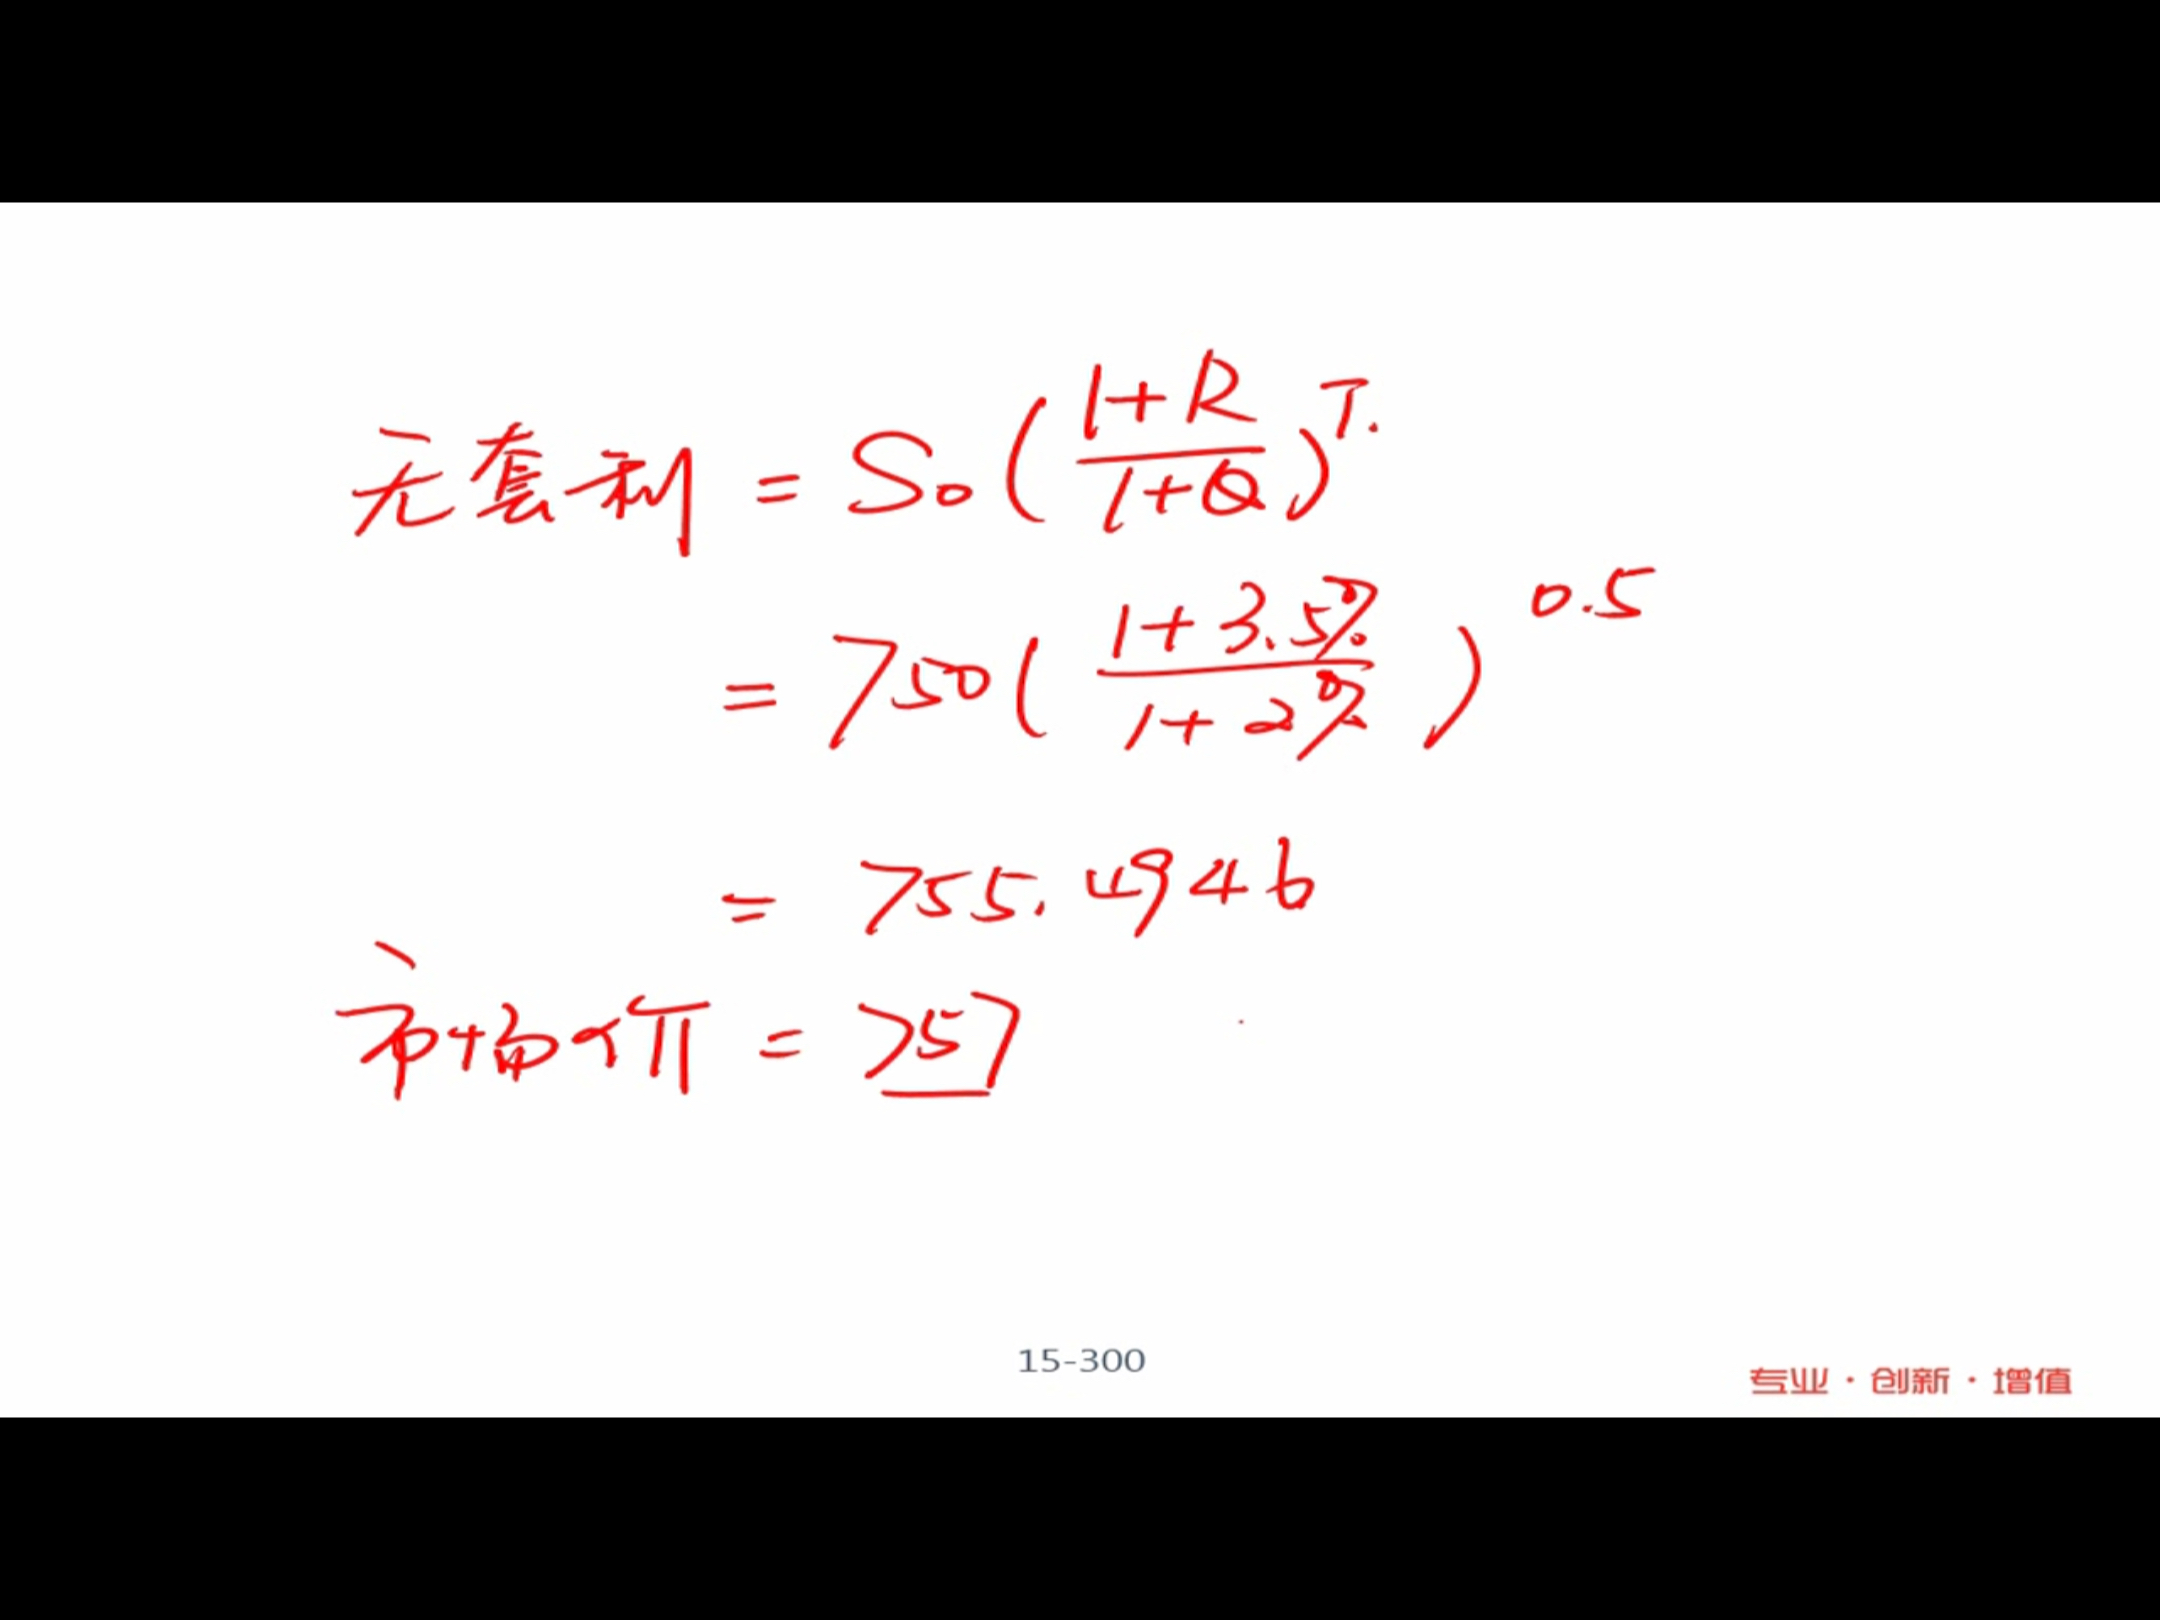 无套利 = S₀ ( (1+R)/(1+Q) )^T.
= 750 ( (1+3.5%)/(1+2%) )^0.5
= 755.4946
市场价 = 757
15-300
专业·创新·增值